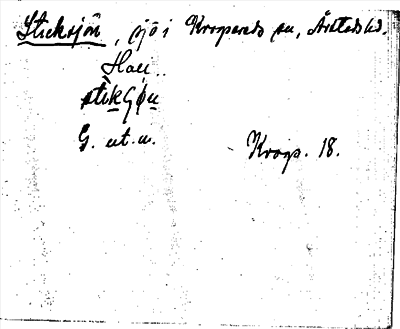 Sticksjön, sjö i Kropareds sn, Årstads hd.
Hall.
stìkʃøn
G. ut. u.
Krop. 18.